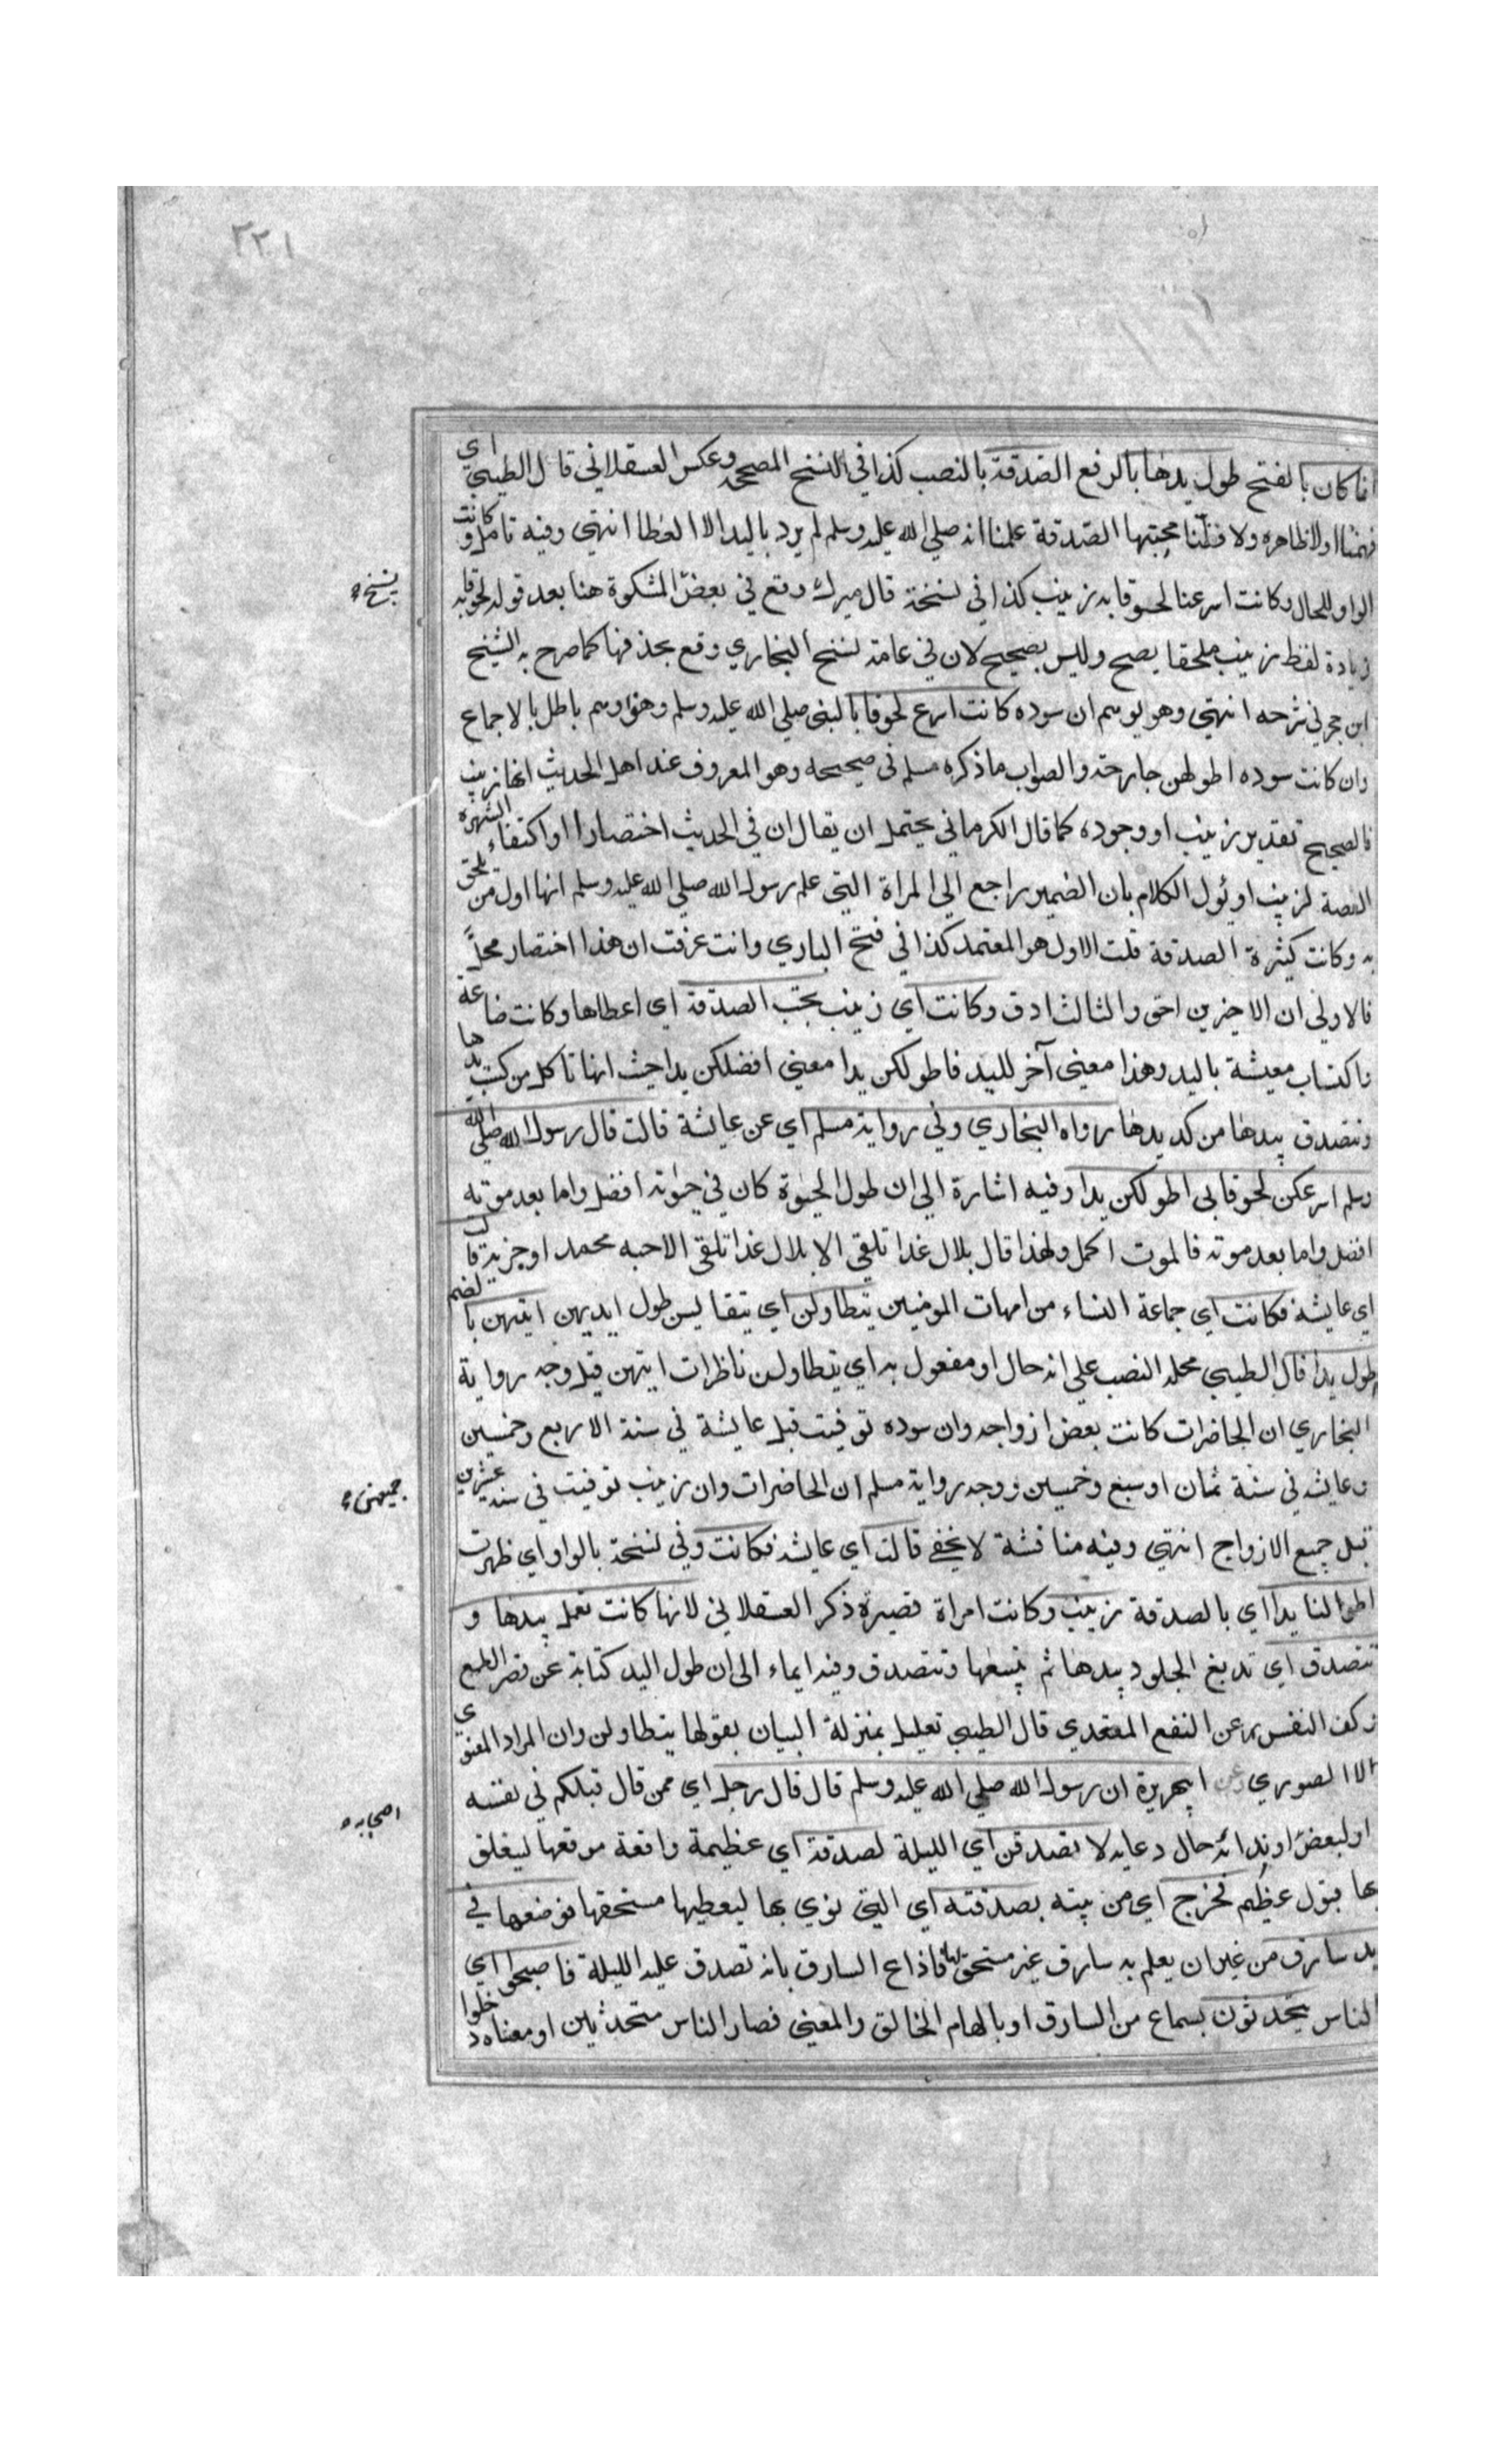 ٢٢١
انما كان بالفتح طول يدها بالرفع الصدقة بالنصب كذا في النسخ المصححة وعكس العسقلاني قال الطيبي اي
فهمنا اولا ظاهره ولا فظننا محبتها الصدقة علمنا انه صلي الله عليه وسلم لم يرد باليد الا العطا انتهي وفيه تامل وكانت
الواو للحال وكانت اسرعنا لحوقا به زينب كذا في نسخة قال ميرك وقع في بعض المشكوة هنا بعد قوله لحوقا به
نسخ
زيادة لفظ زينب ملحقا يصح وليس بصحيح لان في عامة نسخ البخاري وقع بحذفها كما صرح به الشيخ
ابن حجر في شرحه انتهي وهو يوهم ان سوده كانت اسرع لحوقا بالنبي صلي الله عليه وسلم وهو وهم باطل بالاجماع
وان كانت سوده اطولهن جارحة والصواب ما ذكره مسلم في صحيحه وهو المعروف عند اهل الحديث انها زينب
فالصحيح تقدير زينب او وجوده كما قال الكرماني يحتمل ان يقال ان في الحديث اختصارا او اكتفاء الشهرة
القصة لزينب او يؤل الكلام بان الضمير راجع الي المراة التي علم رسول الله صلي الله عليه وسلم انها اول من يلحق
به وكانت كثيرة الصدقة قلت الاول هو المعتمد كذا في فتح الباري وانت عرفت ان هذا اختصار مخلّ
فالاولي ان الاخيرين احق والثالث ادق وكانت اي زينب تحب الصدقة اي اعطاها وكانت ضاعة
ناكتساب معيشة باليد وهذا معني آخر لليد فاطولكن يدا معني افضلكن يدا حيث انها تاكل من كسب يدها
وتتصدق بيدها من كد يدها رواه البخاري وفي رواية مسلم اي عن عايشة قالت قال رسول الله صلي الله
وسلم اسرعكن لحوقا بي اطولكن يدا وفيه اشارة الي ان طول الحيوة كان في حيوته افضل واما بعد موته
افضل واما بعد موته فالموت اكمل ولهذا قال بلال غدا تلقي الابلال غدا تلقي الاحبه محمد او حزبه قالت
اي عايشة فكانت اي جماعة النساء من امهات المومنين يتطاولن اي يتقايسن طول ايديهن ايتهن بالضم
اطول يدا قال الطيبي محله النصب علي انه حال او مفعول به اي يتطاولن ناظرات ايتهن قيل وجه رواية
البخاري ان الحاضرات كانت بعض ازواجه وان سوده توفيت قبل عايشة في سنة الاربع وخمسين
وعايشه في سنة ثمان او سبع وخمسين ووجه رواية مسلم ان الحاضرات وان زينب توفيت في سنة عشرين
جميعهن
قبل جميع الازواج انتهي وفيه مناقشة لا يخفي قالت اي عايشة فكانت وفي نسخة بالواو اي ظهرت
اطولنا يدا اي بالصدقة زينب وكانت امراة قصيرة ذكر العسقلاني لانها كانت تعمل بيدها و
تتصدق اي تدبغ الجلود بيدها ثم تبيعها وتتصدق وفيه ايماء الي ان طول اليد كناية عن قصر الطمع
وكف النفس عن النفع المتعدي قال الطيبي تعليل بمنزلة البيان بقولها يتطاولن وان المراد المعنوي
لا الصوري وعن ابي هريرة ان رسول الله صلي الله عليه وسلم قال قال رجل اي ممن قال قبلكم في نفسه
او لبعض او ندائه حال دعايه لا تصدقن اي الليلة لصدقة اي عظيمة واقعة موقعها ليغلق
اصحابه
بها قبول عظيم فخرج اي من بيته بصدقته اي التي نوي بها ليعطيها مستحقها فوضعها في
يد سارق من غير ان يعلم به سارق غير مستحق لها فاذاع السارق بانه تصدق عليه الليلة فاصبحوا اي
الناس يتحدثون بسماع من السارق او بالهام الخالق والمعني فصار الناس متحدثين او معناه دخلوا